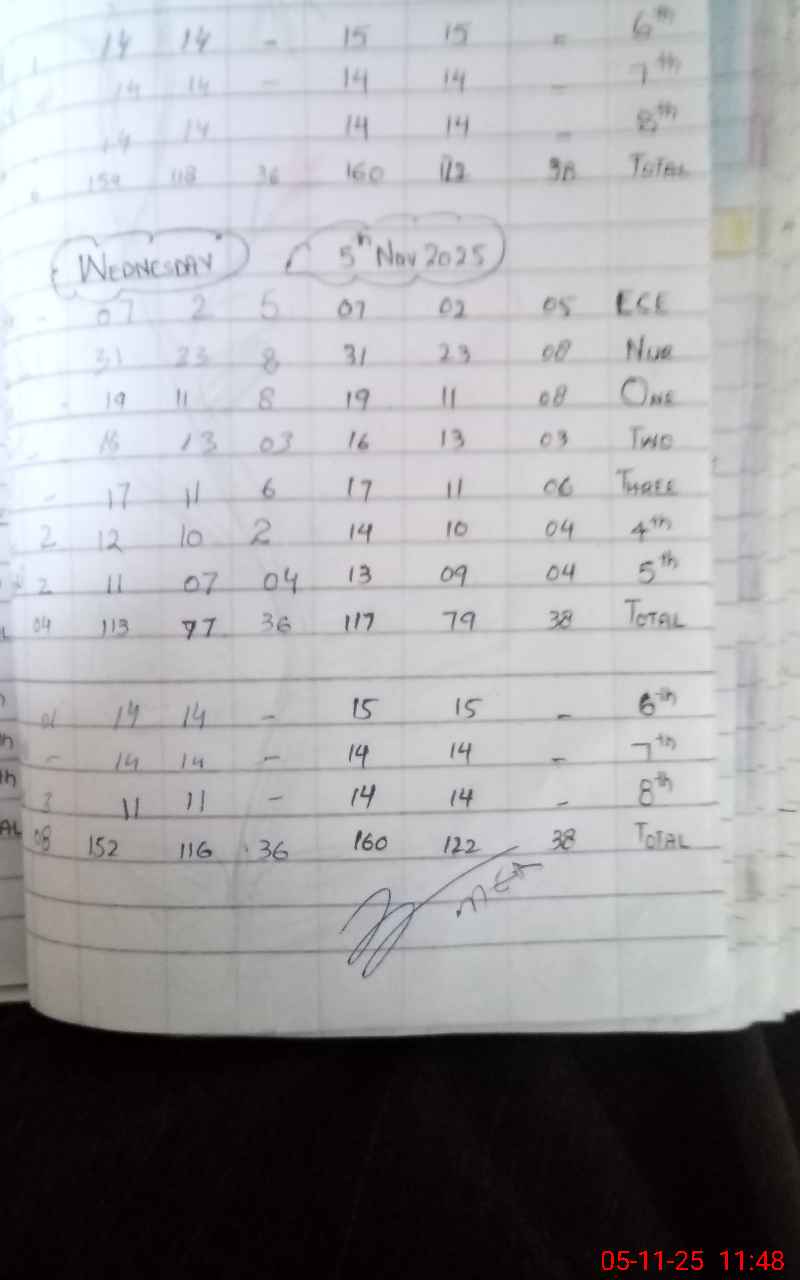 14 14 - 15 15 = 6th
14 14 - 14 14 - 7th
14 14 14 14 - 8th
159 118 36 160 122 38 TOTAL
WEDNESDAY 5th Nov 2025
- 07 2 5 07 02 05 ECE
31 23 8 31 23 08 NUR
- 19 11 8 19 11 08 ONE
- 16 13 03 16 13 03 TWO
- 17 11 6 17 11 06 THREE
2 12 10 2 14 10 04 4th
2 11 07 04 13 09 04 5th
04 113 77 36 117 79 38 TOTAL
01 14 14 - 15 15 - 6th
- 14 14 - 14 14 - 7th
3 11 11 - 14 14 - 8th
08 152 116 36 160 122 38 TOTAL
05-11-25 11:48